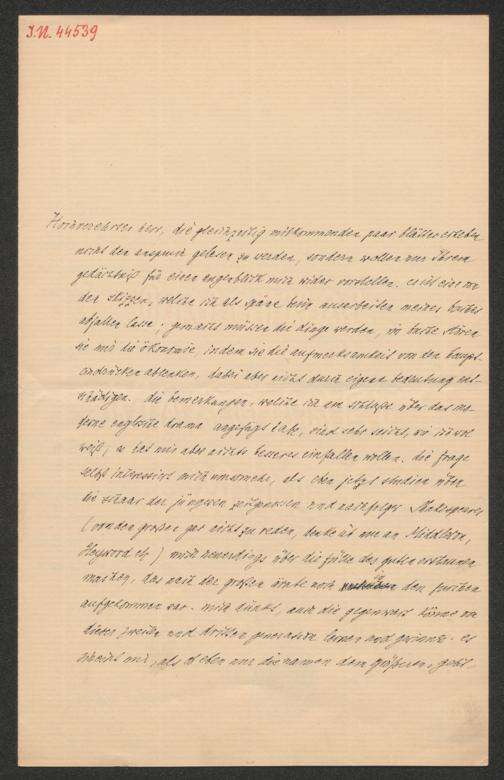 I.N. 44539
Hochverehrter herr, die gleichzeitig mitkommenden paar blätter erheben
nicht den anspruch gelesen zu werden, sondern wollen nur Ihrem
gedächtniß für einen augenblick mich wider vorstellen. es ist eine von
den skizzen, welche ich als späne beim ausarbeiten meines buches
abfallen lasse; gemacht müssen die dinge werden, im buche stören
sie mir die ökonomie, indem sie die aufmerksamkeit von den haupt-
eindrücken ablenken, dabei aber nicht durch eigene bedeutung ent-
schädigen. die bemerkungen, welche ich am schluße über das mo-
derne englische drama angefügt habe, sind sehr seicht, wie ich wol
weiß, es hat mir aber nichts besseres einfallen wollen. die frage
selbst interessiert mich umsomehr, als eben jetzt studien über
die schaar der jüngeren zeitgenossen und nachfolger Shakespeares
(von den großen gar nicht zu reden, denke ich nur an Middleton,
Heywood etc) mich neuerdings über die fülle des guten erstaunen
machen, das nach der großen ernte noch in den furchen
aufgekommen war. mich dünkt, auch die gegenwart könne von
dieser zweiten und dritten generation lernen und gewinnen. es
scheint mir, als ob eben nur die namen dem größeren, gebil-